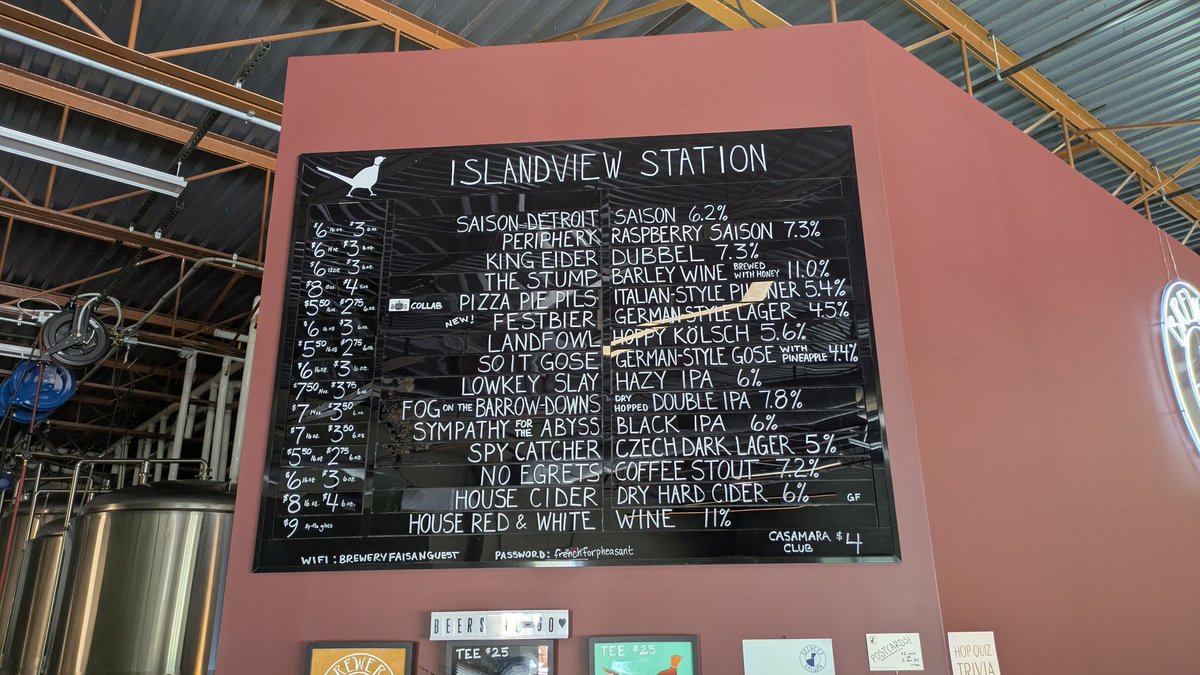 ISLANDVIEW STATION
$6 16oz $3 6oz SAISON DETROIT SAISON 6.2%
$6 14oz $3 6oz PERIPHERY RASPBERRY SAISON 7.3%
$6 13oz $3 6oz KING EIDER DUBBEL 7.3%
$8 $4 THE STUMP BARLEY WINE BREWED WITH HONEY 11.0%
$5.50 $2.75 COLLAB PIZZA PIE PILS ITALIAN-STYLE PILSNER 5.4%
$6 $3 NEW! FESTBIER GERMAN-STYLE LAGER 4.5%
$5.50 $2.75 LANDFOWL HOPPY KÖLSCH 5.6%
$6 16oz $3 6oz SO IT GOSE GERMAN-STYLE GOSE WITH PINEAPPLE 4.4%
$7.50 $3.75 LOWKEY SLAY HAZY IPA 6%
$7 14oz $3.50 FOG ON THE BARROW-DOWNS DRY HOPPED DOUBLE IPA 7.8%
$7 16oz $3.50 SYMPATHY FOR THE ABYSS BLACK IPA 6%
$5.50 16oz $2.75 SPY CATCHER CZECH DARK LAGER 5%
$6 16oz $3 6oz NO EGRETS COFFEE STOUT 7.2%
$8 16oz $4 6oz HOUSE CIDER DRY HARD CIDER 6% GF
$9 by the glass HOUSE RED & WHITE WINE 11%
WIFI: BREWERYFAISANGUEST PASSWORD: frenchforpheasant CASAMARA CLUB $4
BEERS TO-GO
TEE $25
TEE $25
POSTCARDS!
HOP QUIZ
TRIVIA